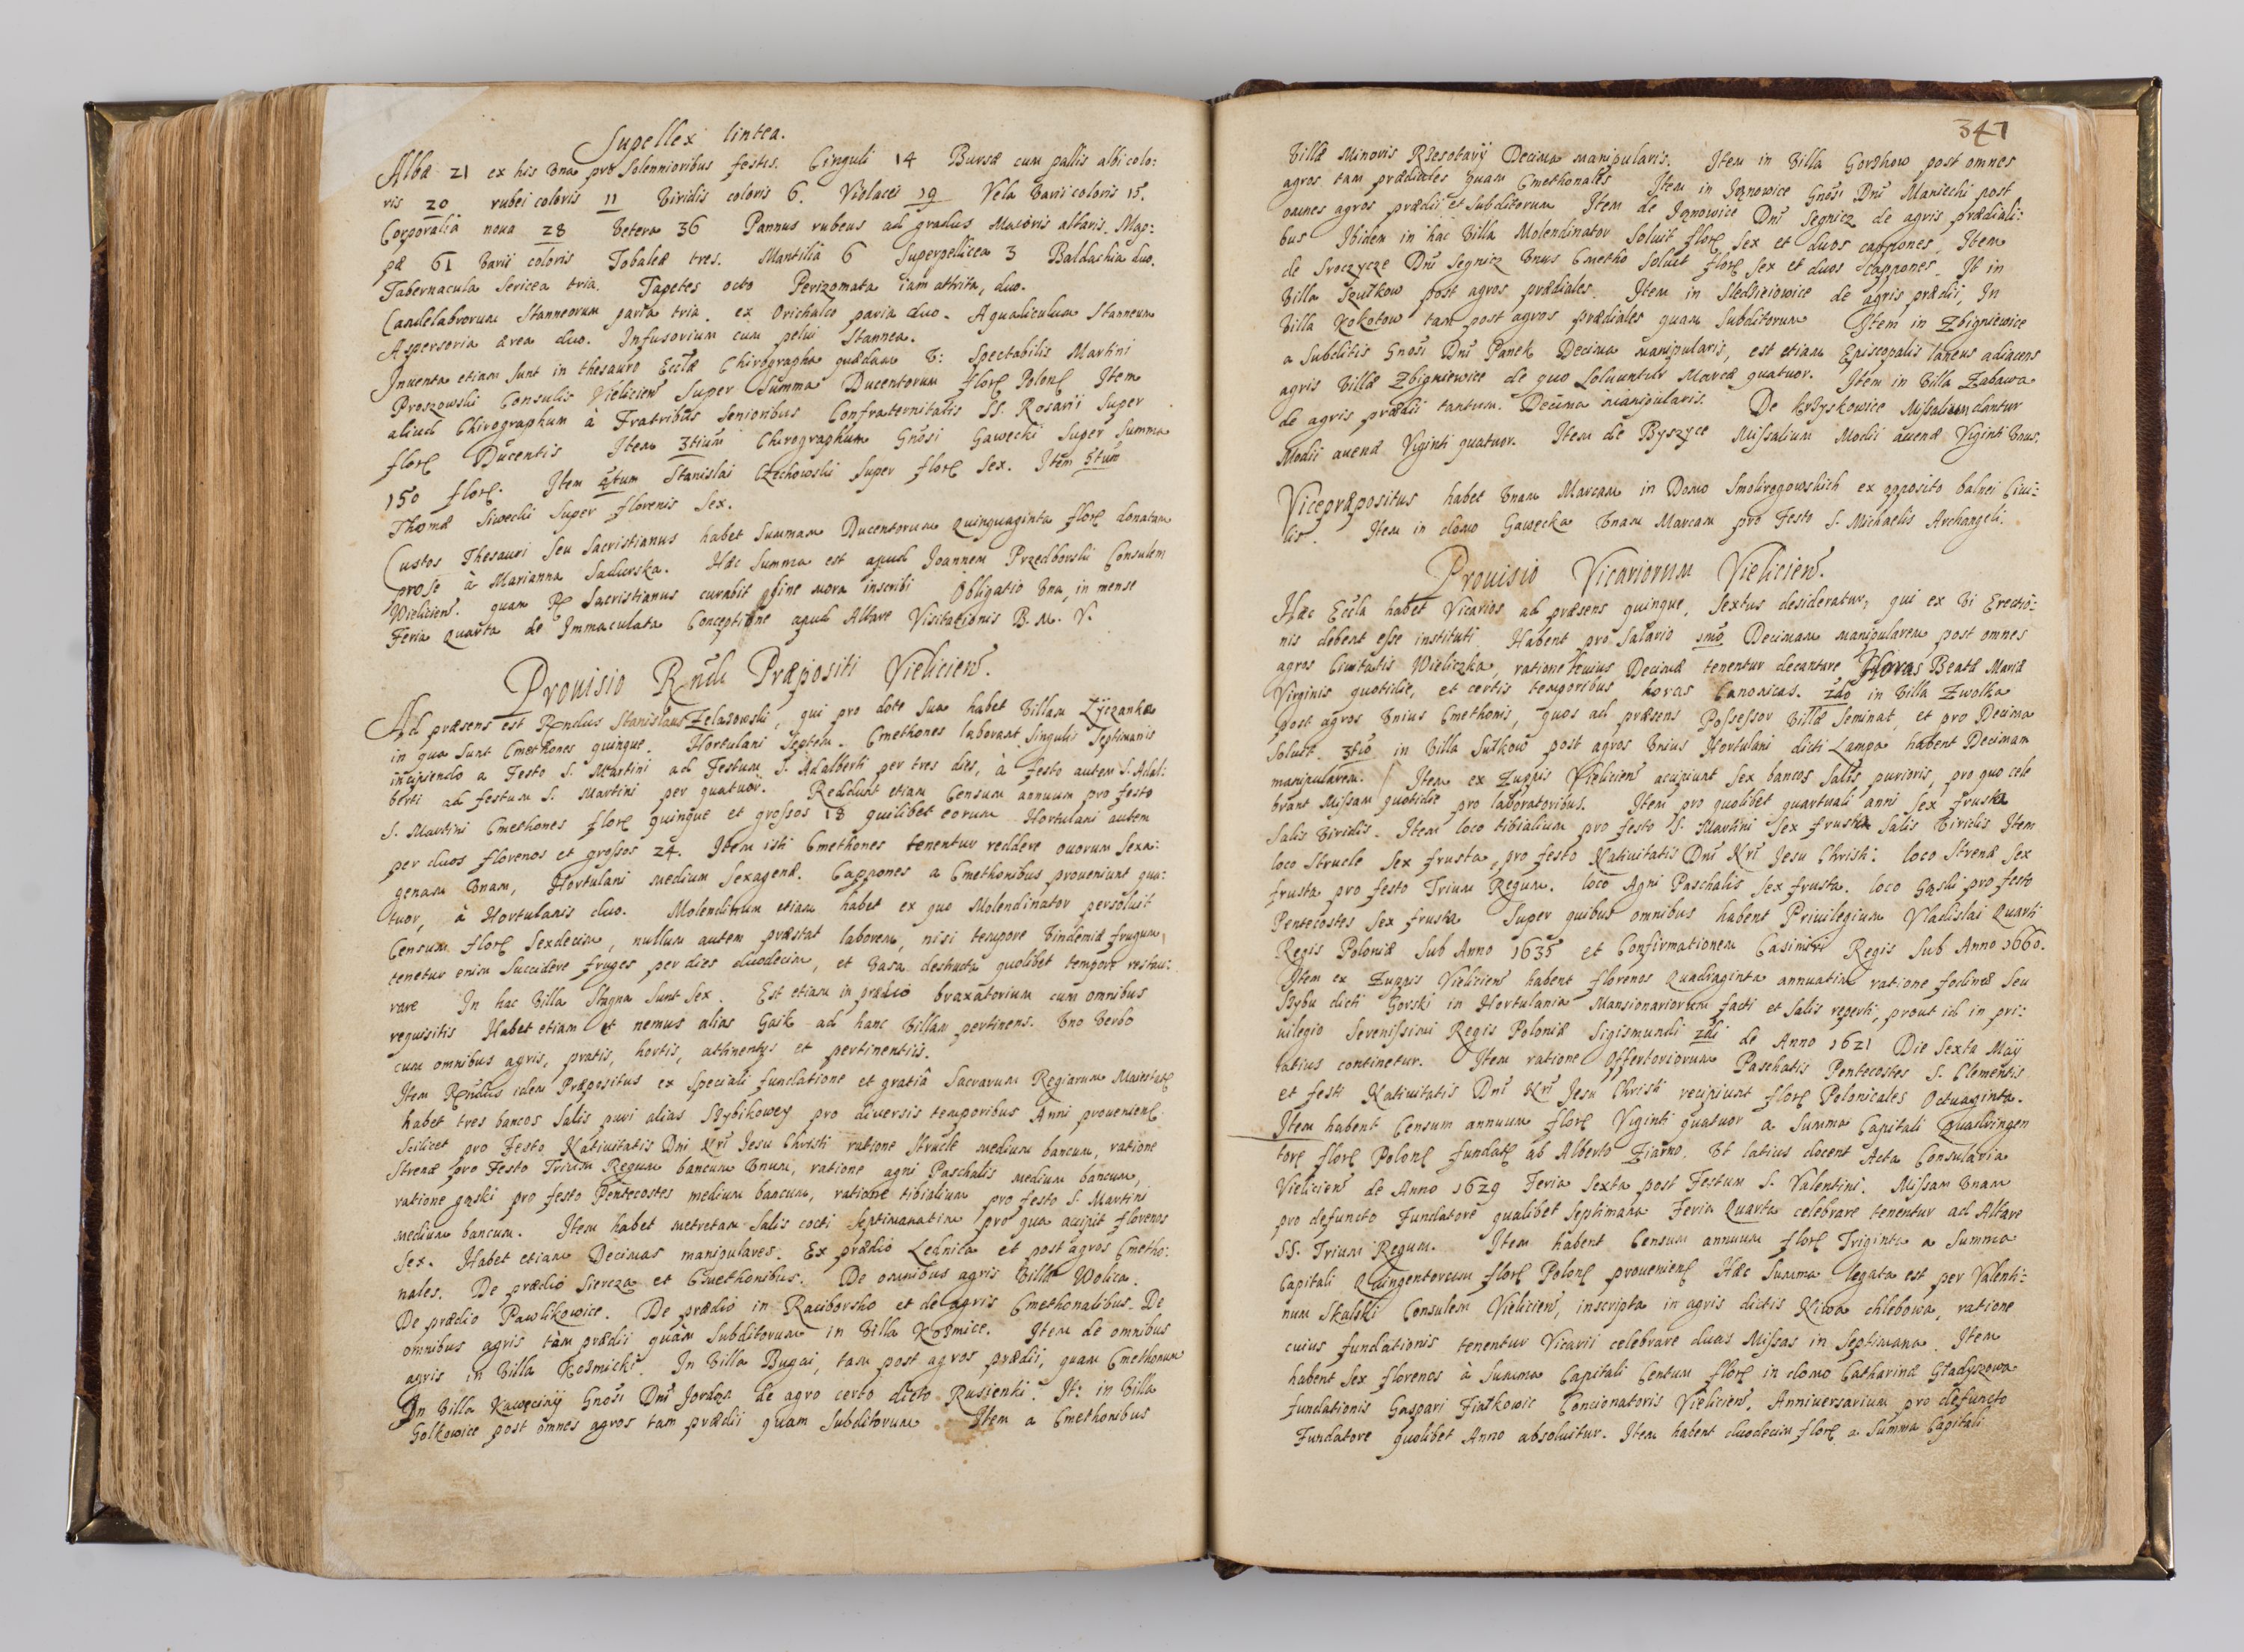 Supellex lintea.
Albæ 21 ex his vna pro Solennioribus festis. Cinguli 14 Bursæ cum pallis albi colo:
ris 20 rubei coloris 11 Viridis coloris 6. Violacei 19 Vela varii coloris 15.
Corporalia noua 28 Vetera 36 Pannus rubeus ad gradus Maioris altaris. Map:
pæ 61 varii coloris Tobaleæ tres. Mantilia 6 Superpellicea 3 Baldachia duo.
Tabernacula sericea tria. Tapetes octo Perizomata iam attrita, duo.
Candelabrorum Stanneorum paria tria. ex Orichalco paria duo. Aqualiculum Stanneum
Aspersoria ærea duo. Infusorium cum pelui Stannea.
Inuenta etiam sunt in thesauro Eccłæ Chirographa quædam v: Spectabilis Martini
Proszowski Consulis Vieliciens Super Summa Ducentorum flor Polon Item
aliud Chirographum à Fratribus Senioribus Confraternitatis SS. Rosarii Super
flor Ducentis Item 3tium Chirographum Gnosi Gawęcki Super Summa
150 flor. Item 4tum Stanislai Czechowski Super flor Sex. Item 5tum
Thomæ Siwecki Super florenis Sex.
Custos Thesauri Seu Sacristianus habet Summam Ducentorum quinquaginta flor donatam
pro se à Marianna Sadurska. Hæc Summa est apud Ioannem Przedborski Consulem
Wieliciens. quam R Sacristianus curabit sine mora inscribi Obligatio vna, in mense
Feria quarta de Immaculata Conceptione apud Altare Visitationis B. M. V.
Prouisio Rndi Præpositi Vieliciens.
Ad præsens est Rendus Stanislaus Zelazowski, qui pro dote sua habet Villam Łyczanka
in qua sunt Cmethones quinque. Hortulani Septem. Cmethones laborant singulis Septimanis
incipiendo a Festo S. Martini ad Festum S. Adalberti per tres dies, à festo autem S. Adal:
berti ad festum S. Martini per quatuor. Reddunt etiam Censum annuum pro festo
S. Martini Cmethones flor quinque et grossos 18 quilibet eorum Hortulani autem
per duos florenos et grossos 24. Item isti Cmethones tenentur reddere ouorum Sexa:
genam vnam, Hortulani medium Sexagenæ. Cappones a Cmethonibus proueniunt qua:
tuor, à Hortulanis duo. Molendinum etiam habet ex quo Molendinator persoluit
Censum flor Sexdecim, nullum autem præstat laborem, nisi tempore Vindemiæ frugum,
tenetur enim Succidere fruges per dies duodecim, et vasa destructa quolibet tempore restau:
rare In hac Villa Stagna sunt Sex. Est etiam in prædio braxatorium cum omnibus
requisitis Habet etiam et nemus alias Gaik ad hanc Villam pertinens. Vno verbo
cum omnibus agris, pratis, hortis, attinentys et pertinentiis.
Item Rendus idem Præpositus ex Speciali fundatione et gratiâ Sacrarum Regiarum Maiestat
habet tres bancos Salis puri alias Szybikowey pro diversis temporibus Anni provenien
Scilicet pro Festo Natiuitatis Dni Nri Jesu Christi ratione Strucle medium bancum, ratione
Strenæ pro Festo Trium Regum bancum vnum, ratione agni Paschalis medium bancum,
ratione gąski pro festo Pentecostes medium bancum, ratione tibialium pro festo S. Martini
medium bancum. Item habet metretam Salis cocti septimanatim pro qua accipit florenos
Sex. Habet etiam Decimas manipulares. Ex prædio Lednica et post agros Cmetho:
nales. De prædio Siercza et Cmethonibus. De omnibus agris Villæ Wolica.
De prædio Pawlikowice. De prædio in Raciborsko et de agris Cmethonalibus. De
omnibus agris tàm prædii quàm Subditorum in Villa Kozmice. Item de omnibus
agris in Villa Kozmicki In Villa Bugai, tam post agros prædii, quam Cmethonum
In Villa Kawęciny Gnosi Dni Jordza de agro certo dicto Rusienki. It: in Villa
Golkowice post omnes agros tam prædii quam Subditorum Item a Cmethonibus
347
Villæ Minoris Rzesotary Decima manipularis. Item in Villa Gorzkow post omnes
agros tam prædiales quam Cmethonales Item in Jąnowice Gnosi Dni Maniecki post
omnes agros prædii et Subditorum Item de Jąnowice Dni Segnicz de agris prædiali:
bus Ibidem in hac Villa Molendinator Soluit flor Sex et duos cappones. Item
de Sroczycze Dni Segnicz vnus Cmetho Soluit flor Sex et duos cappones. It in
Villa Szułkow post agros prædiales. Item in Sledzieiowice de agris prædii, In
Villa Kokotow tam post agros prædiales quam Subditorum Item in Zbigniewice
a Subditis Gnosi Dni Panek Decima manipularis, est etiam Episcopalis laneus adiacens
agris Villæ Zbigniewice de quo soluuntur Marcæ quatuor. Item in Villa Zabawa
de agris prædii tantum. Decima manipularis. De Krzyskowice Missalium dantur
Modii auenæ Viginti quatuor. Item de Byszyce Missalium Modii auenæ Viginti vnus.
Vicepræpositus habet vnam Marcam in Domo Smolirogowskich ex opposito balnei Ciui:
lis. Item in domo Gawęcka vnam Marcam pro Festo S. Michaelis Archangeli.
Prouisio Vicariorum Vieliciens.
Hæc Eccla habet Vicarios ad præsens quinque, Sextus desideratur, qui ex vi Erectio:
nis debent esse instituti Habent pro Salario 1mo Decimam manipularem post omnes
agros Ciuitatis Wieliczka, ratione huius Decimæ tenentur decantare Horas Beatæ Mariæ
Virginis quotidie, et certis temporibus horas Canonicas. 2do in Villa Zwolka
post agros vnius Cmethonis, quos ad præsens Possessor Villæ Seminat, et pro Decima
soluit. 3tio in Villa Sułkow post agros vnius Hortulani dicti Lampa habent Decimam
manipularem. Item ex Zuppis Vieliciens accipiunt Sex bancos Salis purioris, pro quo cele
brant Missam quotidie pro laboratoribus. Item pro quolibet quartuali anni Sex frusta
Salis Viridis. Item loco tibialium pro festo S. Martini Sex frusta Salis Viridis Item
loco Strucle Sex frusta, pro festo Natiuitatis Dni Nri Jesu Christi. loco Strenæ Sex
frusta pro festo Trium Regum. loco Agni Paschalis Sex frusta. loco Gąski pro festo
Pentecostes Sex frusta Super quibus omnibus habent Priuilegium Vladislai Quarti
Regis Poloniæ Sub Anno 1635 et Confirmationem Casimiri Regis Sub Anno 1660.
Item ex Zuppis Vieliciens habent florenos Quadraginta annuatim ratione fodinæ Seu
Szybu dicti Gorski in Hortulania Mansionariorum facti et Salis reperti, prout id in pri:
uilegio Serenissimi Regis Poloniæ Sigismundi 2di de Anno 1621 Die Sexta Maÿ
latius continetur. Item ratione Offertoriorum Paschatis Pentecostes S. Clementis
et festi Natiuitatis Dni Nri Jesu Christi recipiunt flor Polonicales Octuaginta.
Item habent Censum annuum flor Viginti quatuor a Summa Capitali Quadringen
tor flor Polon fundat ab Alberto Ziarno. Vt latius docent Acta Consularia
Vieliciens de Anno 1629 Feria Sexta post Festum S. Valentini. Missam vnam
pro defuncto Fundatore qualibet Septimana Feria Quarta celebrare tenentur ad Altare
SS. Trium Regum. Item habent Censum annuum flor Triginta a Summa
Capitali Quingentorum flor Polon prouenien Hæc Summa legata est per Valenti:
num Skalski Consulem Vieliciens, inscripta in agris dictis Niwa chlebowa, ratione
cuius fundationis tenentur Vicarii celebrare duas Missas in Septimana. Item
habent Sex florenos à Summa Capitali Centum flor in domo Catharinæ Gładyszowa
fundationis Gaspari Fiałkowic Concionatoris Vieliciens. Anniuersarium pro defuncto
Fundatore quolibet Anno absoluitur. Item habent duodecim flor a Summa Capitali